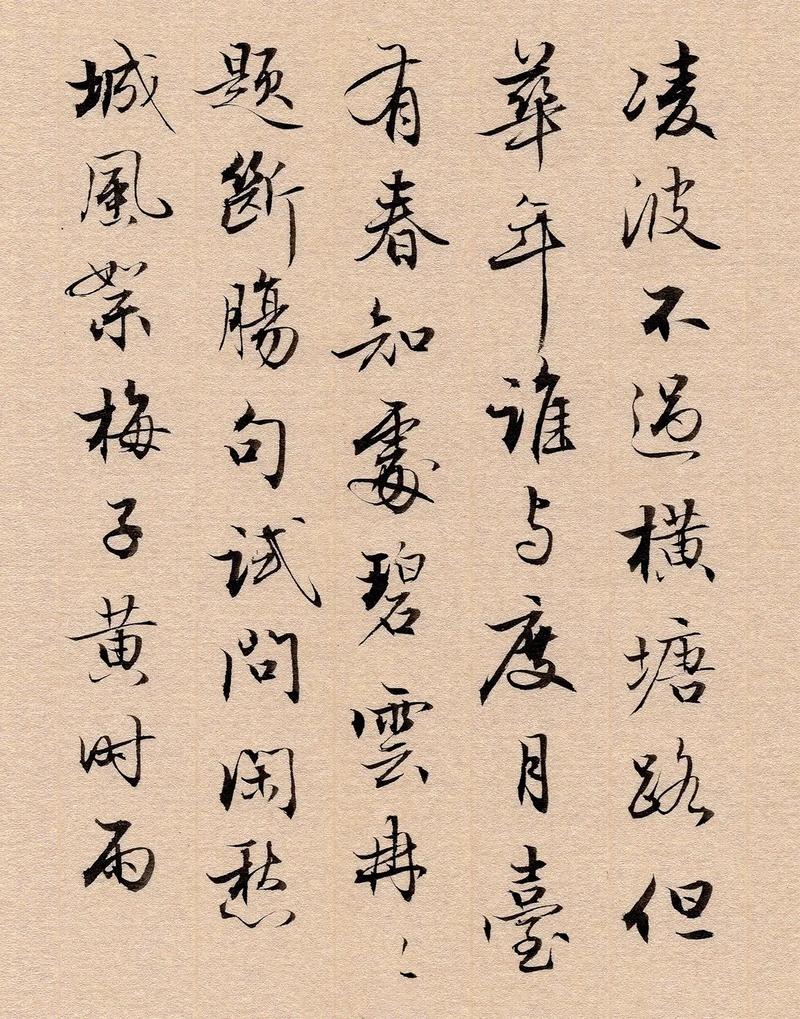 凌波不過橫塘路但
華年誰与度月臺
有春知處碧雲冉〻
題斷腸句試問閑愁
城風絮梅子黄时雨